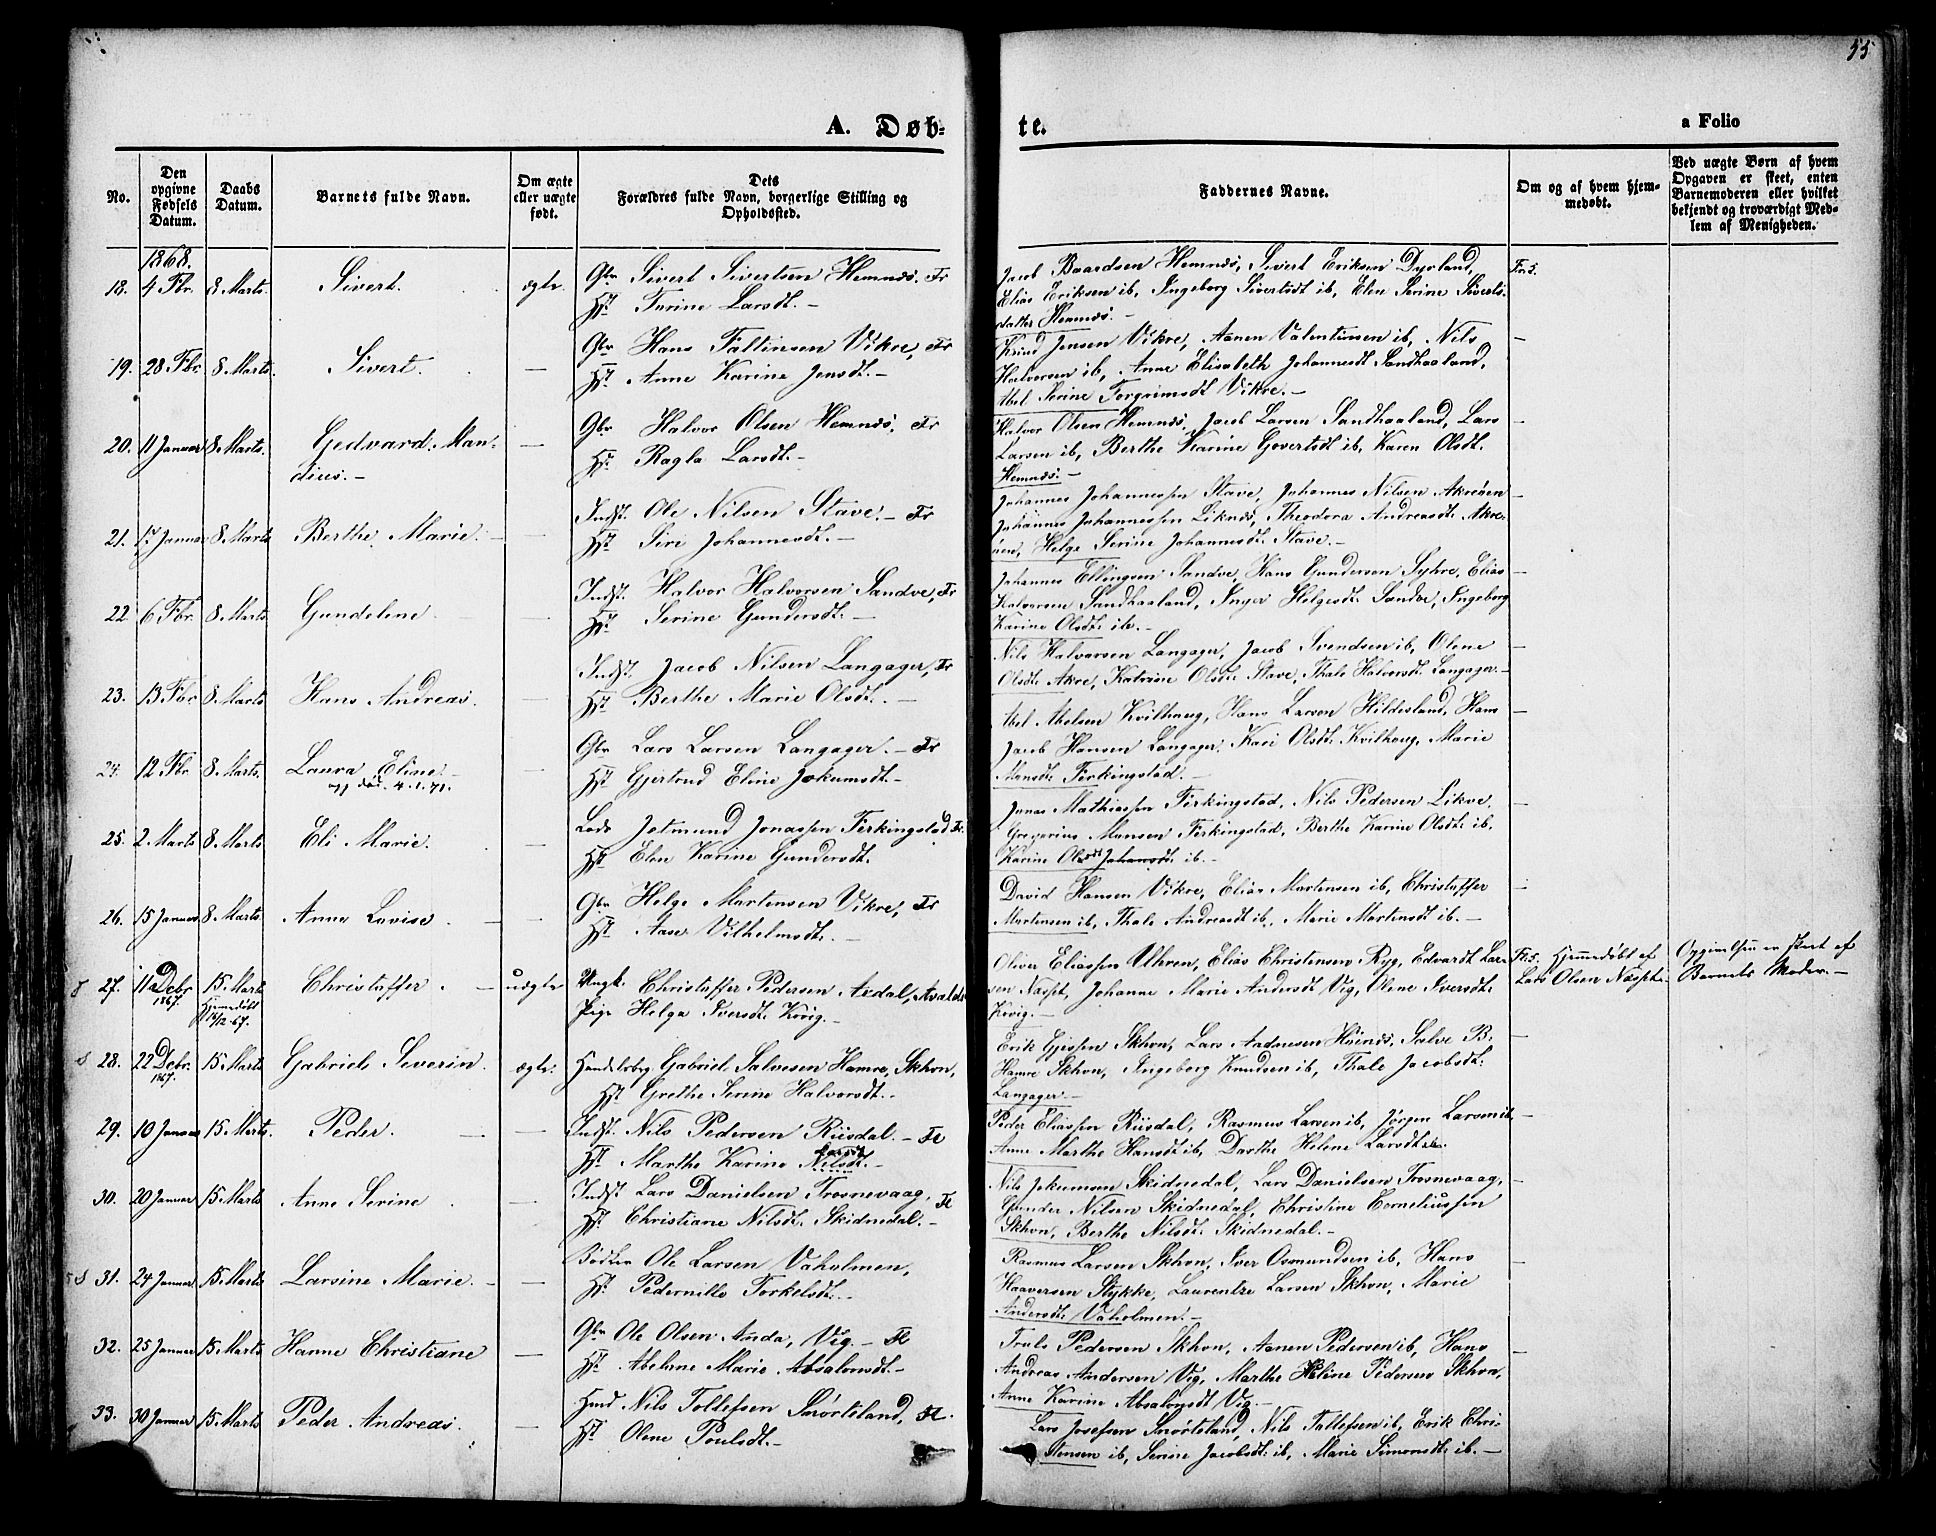 55
A. Døb=
te.
a Folio
No.
Den opgivne Fødsels Datum.
Daabs Datum.
Barnets fulde Navn.
Om ægte eller uægte født.
Dets Forældres fulde Navn, borgerlige Stilling og Opholdssted.
Faddernes Navne.
Om og af hvem hjem-
medøbt.
Ved uægte Børn af hvem
Opgaven er skeet, enten
Barnemoderen eller hvilket
bekjendt og troværdigt Med-
lem af Menigheden.
1868.
18. 4 Fbr. 8 Marts. Sivert. ægte.
Gbr Sivert Sivertsen Hemnæs. Fr
Hst. Serine Larsdt. —
Jacob Baardsen Hemnæs, Sivert Eriksen Dyrland,
Elias Eriksen ib, Ingeborg Sivertsdt ib, Elen Serine Siverts-
datter Hemnæs. —
19. 28 Fbr. 8 Marts. Sivert. —
Gbr Hans Faltinsen Vikre, Fr
Hst. Anne Karine Jensdt. —
Knud Jensen Vikre, Aanen Valentinsen ib, Nils —
Halvorsen ib, Anne Elisabeth Johannesdt Sandhaaland,
Abel Serine Torgrimsdt Vikre. —
20. 11 Januar 8 Marts. Gedvard. Man-
dius. —
Gbr Halvor Olsen Hemnæs, Fr
Hst. Ragla Larsdt. —
Halvor Olsen Hemnæs, Jacob Larsen Sandhaaland, Lars —
Larsen ib, Berthe Karine Govertsdt ib, Karen Olsdt.
Hemnæs. —
21. 17 Januar 8 Marts Berthe Marie. — —
Indst. Ole Nilsen Stave. — Fr
Hst. Siri Johannesdt. —
Johannes Johannessen Stave, Johannes Nilsen Akrøen —
Johannes Johannessen Liknæs, Theodora Andreasdt. Akre-
øen, Helge Serine Johannesdt. Stave. —
22. 6 Fbr. 8 Marts. Gundeline. —
Indst. Halvor Halvorsen Sandve, Fr
Hst. Serine Gundersdt. —
Johannes Ellingsen Sandve, Hans Gundersen Syhre, Elias —
Halvorsen Sandhaaland, Inger Helgesdt. Sandve, Ingeborg
Karine Olsdt. ib. —
23. 13 Fbr. 8 Marts Hans Andreas. —
Indst. Jacob Nilsen Langager, Fr
Hst. Berthe Marie Olsdt. —
Nils Halvorsen Langager, Jacob Svendsen ib, Olene —
Olsdt. Akre, Katrine Olsdt. Stave, Thale Halvorsdt. Langager. —
24. 12 Fbr. 8 Marts. Laura Eline. — —
opg død. 4.1.71.
Gbr Lars Larsen Langager. — Fr
Hst Gjertrud Eline Jokumsdt. —
Abel Abelsen Kvilhaug, Hans Larsen Hildesland, Hans —
Jacob Hansen Langager, Kari Olsdt. Kvilhaug, Marie
Mansdt. Ferkingstad. —
25. 2 Marts 8 Marts. Eli Marie. —
Lods Jetmund Jonassen Ferkingstad Fr.
Hst Elen Karine Gundersdt.
Jonas Mathiassen Ferkingstad, Nils Pedersen Likve, —
Gregorius Mansen Ferkingstad, Berthe Karine Olsdt. ib,
Karine Olsdt Johansdt. ib. —
26. 15 Januar 8 Marts. Anna Lovise. — —
Gbr Helge Martensen Vikre, Fr
Hst. Aase Vilhelmsdt. —
David Hansen Vikre, Elias Martensen ib, Christoffer —
Martensen ib, Thale Andreasdt ib, Marie Martensdt ib. —
27. 11 Debr 1867. 15 Marts Hjemedøbt 14/12-67. Christoffer. — uægte
Ungk. Christoffer Pedersen Ardal, Avalds
Pige Helga Iversdt. Kvig. —
Oliver Eliassen Uthren, Elias Christensen Ryg, Edvardt Lar-
sen Næsset, Johanne Marie Andersdt Vig, Olene Iversdt.
Kvig. —
Fr. 5. Hjemmedøbt af
Lars Olsen Næsset.
Opgivelsen er skeet af
Barnets Moder. —
28. 22 Debr. 1867. 15 Marts Gabriel Severin. ægte.
Handelsbrg. Gabriel Salvesen Hamre, Skhvn,
Hst Grethe Serine Halvorsdt. —
Erik Gjessen Skhvn, Lars Aadnesen Høinæs, Salve B. —
Hamre Skhvn, Ingeborg Knudsen ib, Thale Jacobsdt.
Langager. —
29. 10 Januar 15 Marts. Peder. — —
Indst. Nils Pedersen Riisdal. — Fl
Hst Marthe Karine Nilsdt. —
Peder Eliassen Riisdal, Rasmus Larsen ib, Jørgen Larsen ib —
Anne Marthe Hansdt ib, Dorthe Helene Larsdt ib.
30. 20 Januar 15 Marts Anne Serine. —
Indst Lars Danielsen Trosnevaag, Fl
Hst. Christiane Nilsdt. Skidnedal. —
Nils Jokumsen Skidnedal, Lars Danielsen Trosnevaag, —
Gunder Nilsen Skidnedal, Christine Corneliussen
Skhvn, Berthe Nilsdt. Skidnedal. —
31. 24 Januar 15 Marts Larsine Marie. — —
Bødker Ole Larsen Vaholmen,
Hst. Pedernille Torkelsdt. —
Rasmus Larsen Skhvn, Iver Osmundsen ib, Hans —
Haaversen Stykke, Laurentze Larsen Skhvn, Marie
Andersdt. Vaholmen. —
32. 25 Januar 15 Marts. Hanne Christiane —
Gbr Ole Olsen Anda, Vig — Fl
Hst. Abelone Marie Absalonsdt. —
Truls Pedersen Skhvn, Aanen Pedersen ib, Hans —
Andreas Andersen Vig, Marthe Heline Pedersen Skhvn,
Anne Karine Absalonsdt Vig. —
33. 30 Januar 15 Marts. Peder Andreas. —
Hmd Nils Tollefsen Snørteland, Fl.
Hst. Olene Poulsdt. —
Lars Josefsen Snørteland, Nils Tollefsen ib, Erik Chri-
stensen ib, Serine Jacobsdt. ib, Marie Simonsdt. ib. —